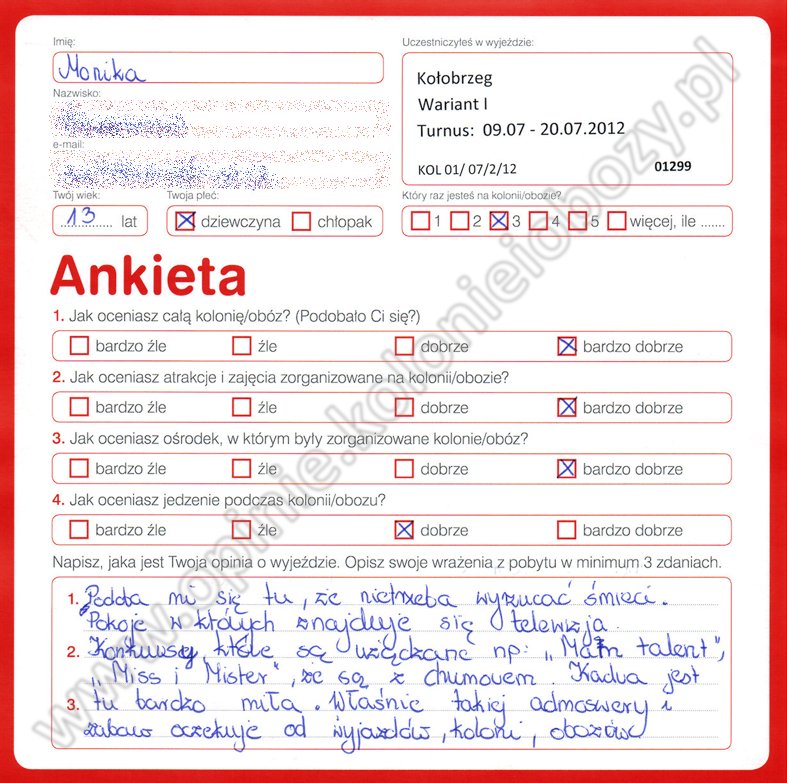 Imię:
Uczestniczyłeś w wyjeździe:
Monika
Kołobrzeg
Wariant I
Turnus: 09.07 - 20.07.2012
KOL 01/ 07/2/12
01299
Nazwisko:
e-mail:
Twój wiek:
Twoja płeć:
Który raz jesteś na kolonii/obozie?
13 lat
dziewczyna
chłopak
1 2 3 4 5 więcej, ile .......
Ankieta
1. Jak oceniasz całą kolonię/obóz? (Podobało Ci się?)
bardzo źle źle dobrze bardzo dobrze
2. Jak oceniasz atrakcje i zajęcia zorganizowane na kolonii/obozie?
bardzo źle źle dobrze bardzo dobrze
3. Jak oceniasz ośrodek, w którym były zorganizowane kolonie/obóz?
bardzo źle źle dobrze bardzo dobrze
4. Jak oceniasz jedzenie podczas kolonii/obozu?
bardzo źle źle dobrze bardzo dobrze
Napisz, jaka jest Twoja opinia o wyjeździe. Opisz swoje wrażenia z pobytu w minimum 3 zdaniach.
1. Podoba mi się tu, że nietrzeba wyrzucać śmieci.
Pokoje w których znajduje się telewizja.
2. Konkursy, które są użądzane np: „Mam talent",
„Miss i Mister", że są z chumorem. Kadra jest
3. tu bardzo miła. Właśnie takiej admoswery i
zabaw oczekuje od wyjazdów, koloni, obozów
www.opinie.kolonieiobozy.pl